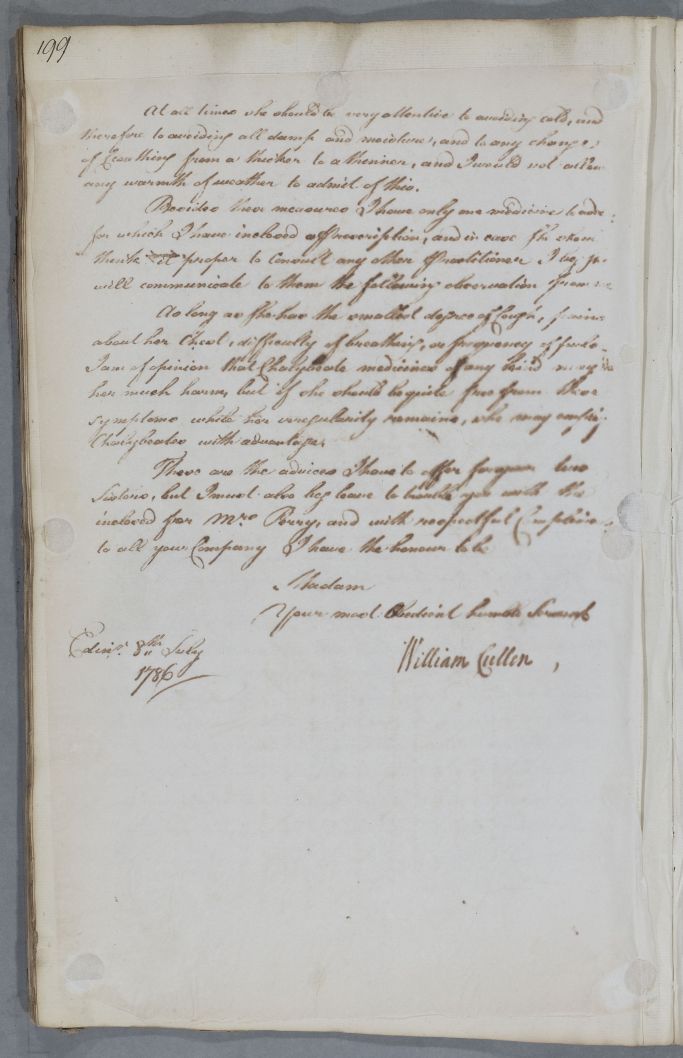 199
At all times she should be very attentive to avoiding cold, and
therefore to avoiding all damp and moisture, and to any change
of Cloathing from a thicker to a thinner, and I would not allow
any warmth of weather to admit of this.
Besides these measures I have only one medicine to add
for which I have inclosed a Prescription, and in case she shou
think it proper to consult any other Practitioner I beg yo
will communicate to them the following observation from me
As long as she has the smallest degree of Cough, pains
about her Chest, difficulty of breathing, or frequency of pulse
I am of opinion that Chalybeate medicines of any kind may do
her much harm, but if she should be quite free from these
symptoms while her irregularity remains, she may employ
Chalybeates with advantage.
These are the advices I have to offer for your two
Sisters, but I must also beg leave to trouble you with the
inclosed for Mrs Perry, and with respectful Complim
to all your Company I have the honour to be
Madam
Your most Obedient humble Servant
Edinr. 8th July
William Cullen
1786